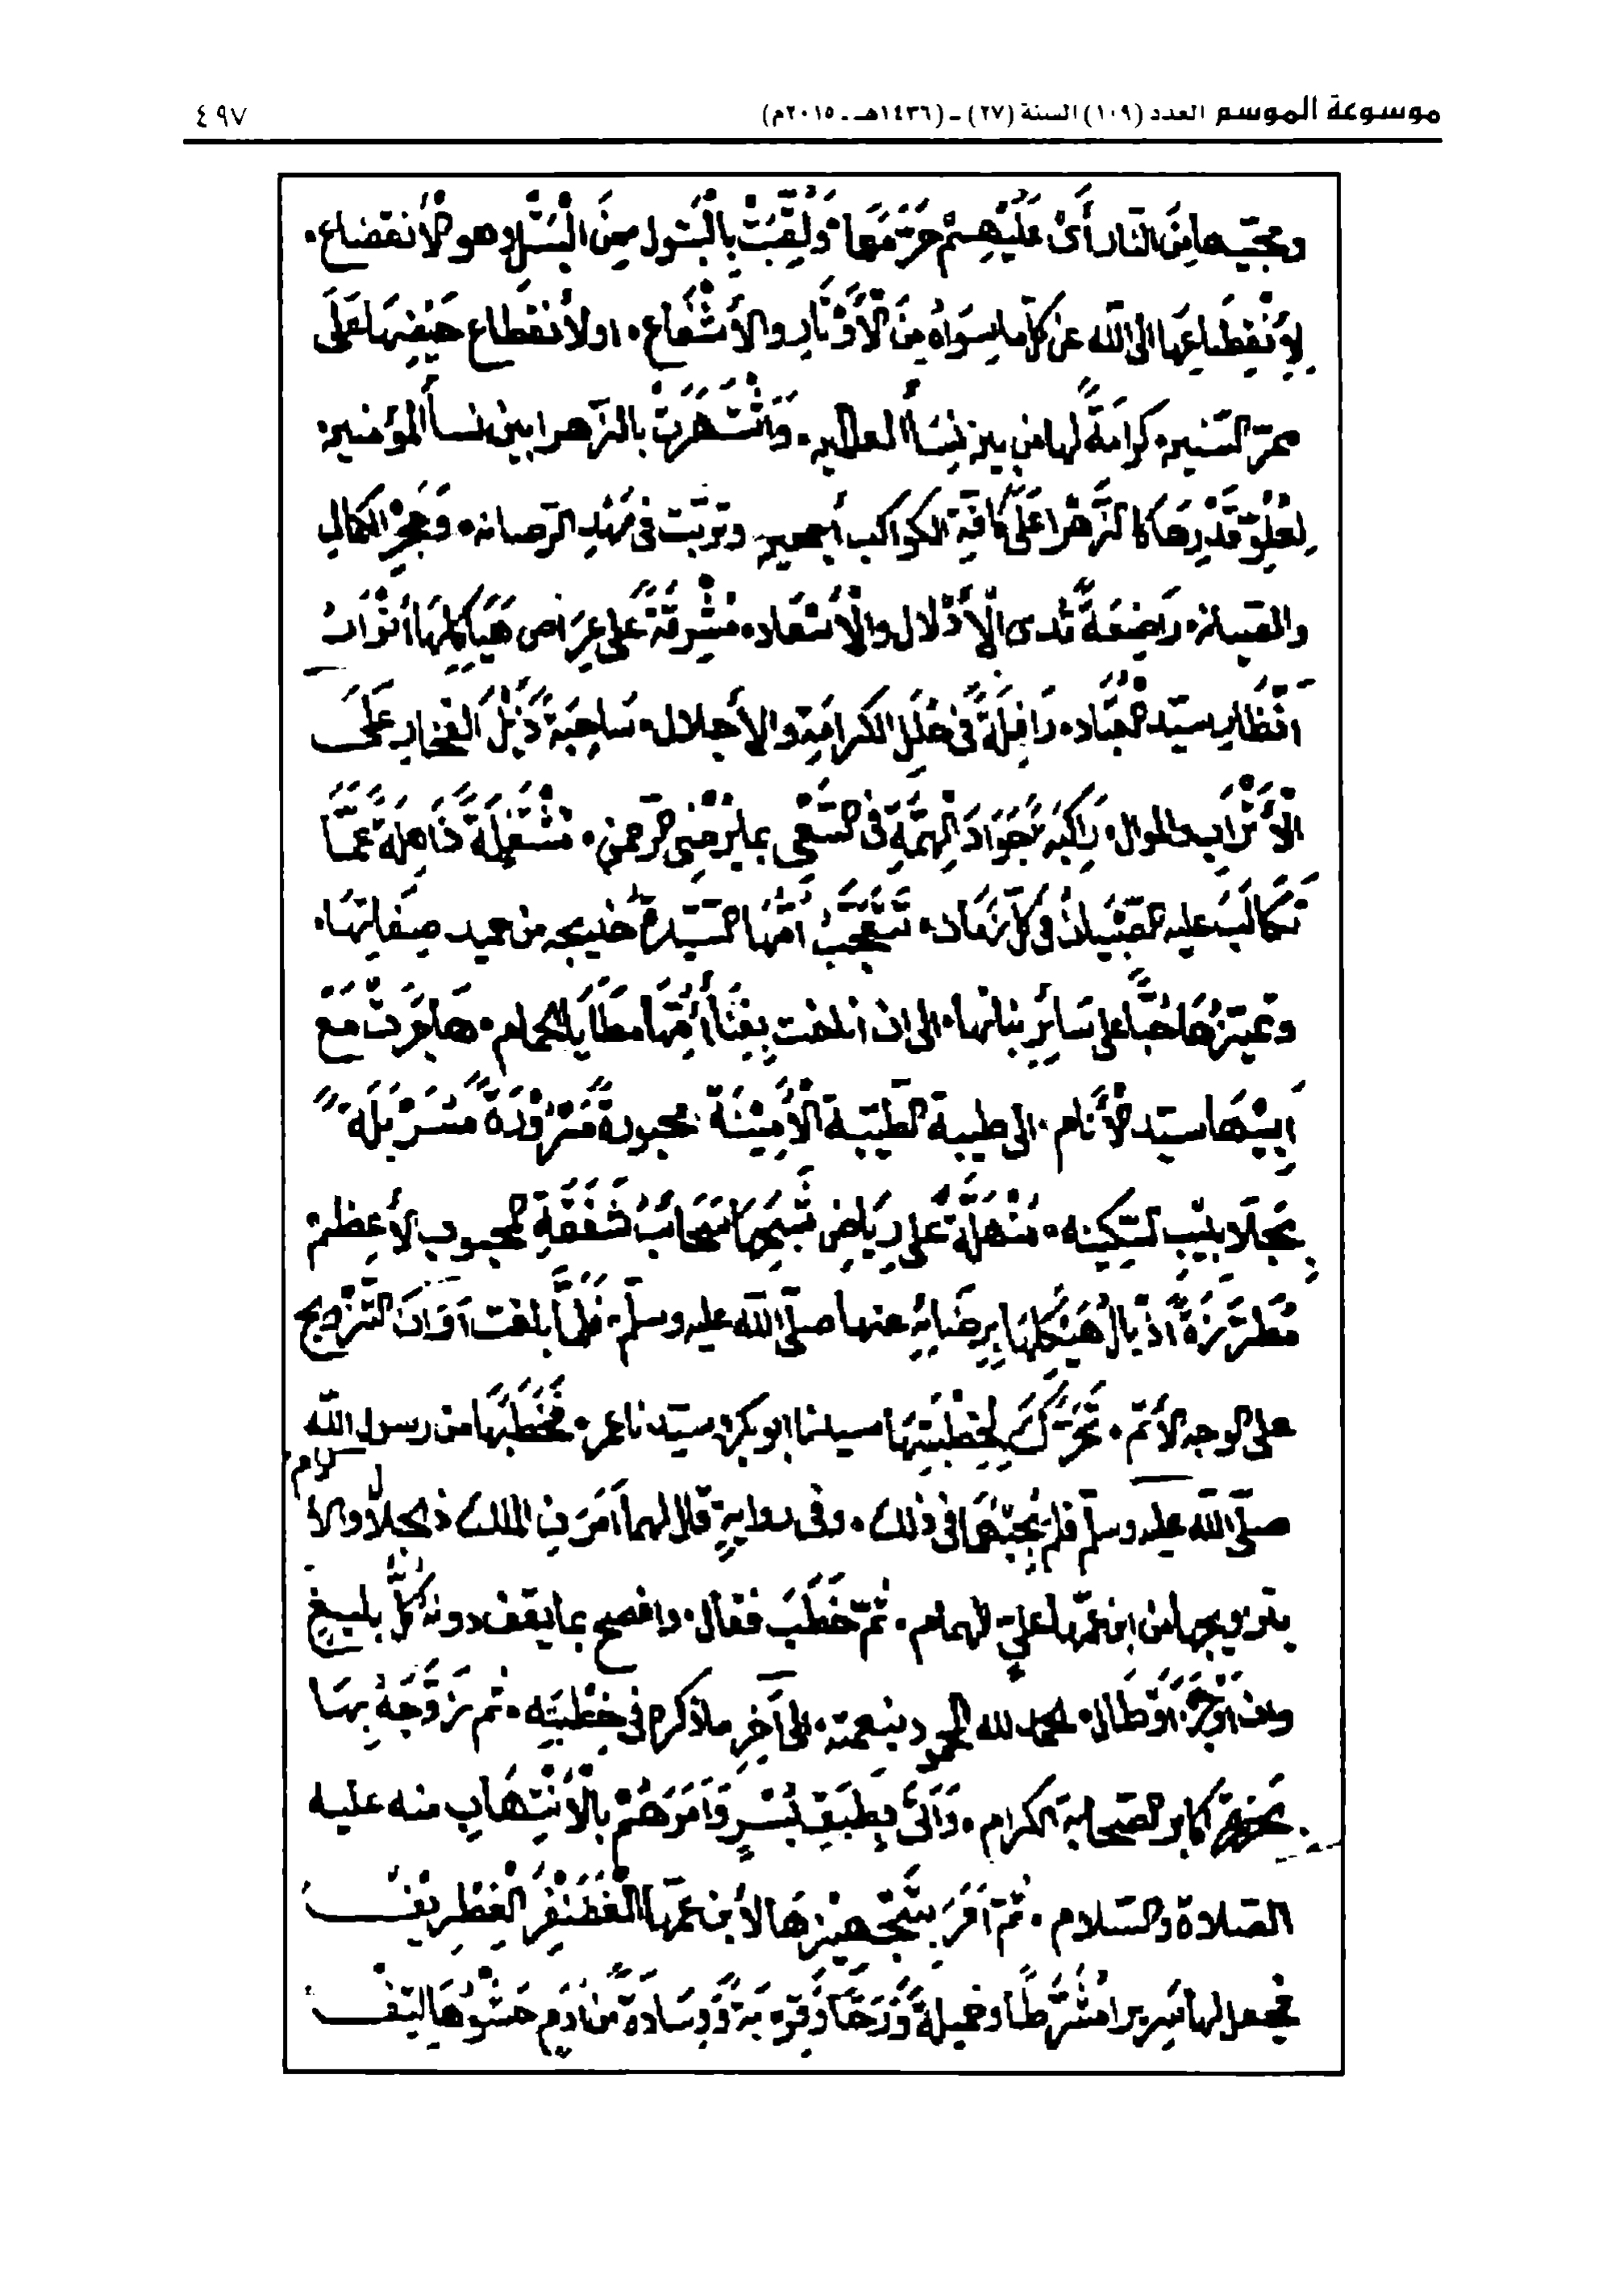 موسوعة الموسم العدد (١٠٩) السنة (٢٧) - (١٤٣٦هـ - ٢٠١٥م) ٤٩٧
ومحبيها مِنَ النار أَىْ عَلَيْهِمْ حَرَّمَهَا. وَلُقِّبَتْ بِالْبَتول مِنَ الْبَتْلِ وهو الْأنقضاع.
لِاِنْقِطَاعِهَا الى الله عن كلّ ما سِوَاهُ مِنَ الْأَوْتَارِ والأَشْفَاع. او لأنقطاع حَيْضِهَا عَلَى
ممرّ السّنين. كَرَامَةً لها من بين نِسَاءِ العالمين. وَاشْتَهَرَتْ بالزّهرا بين نسأ المؤمنين.
لِعُلُوِّ قَدْرِهَا كالزَّهْرا عَلَى كَافّةِ الكواكب أجمعين وتربّت فى مَهْدِ الرّصانه. وَحِجْرِ الكمالِ
والصّيانه. رَاضِعَةً ثدى الْأَدْلال والْأَسْعَاد. مُشْرِقَةً على عِرَاصِ هَيَاكِلِهَا أَنْوَارُ
أَنْظَارِ سيّد العباد. رَافِلَةً فى حُلَلِ الكرامَةِ والأجلال. سَاحِبَةً ذَيْلَ الفِخَارِ عَلَى
الْأَتْرَابِ والموال. رَاكِبَةً جَوَادَ الْهِمَّةِ فى السّعْىِ بما يُرْضِى الرّحمن. مُشْتَغِلَةً ذَاهِلَةً عَمَّا
تَكَالَبَ عليه الصّبْيَانُ فى كلّ زَمَان. تَتَعَجَّبُ أُمُّهَا السّيّدةُ خديجه من حميد صِفَاتِهَا.
وَتميّزُهَا حُبًّا على سَائِرِ بناتها. الى ان اناخت بِفِنَاءِ أُمِّهَا مَطَايَا الحِمام. هَاجَرَتْ مَعَ
أَبِيْهَا سيّد الْأَنَام. الى طيبة الطيّبة الْأَمِيْنَة محبورةً مَرْفُودَةً مُسَرْبَلَةً
بِجَلَابِيْبِ السّكينه. مُنْهَلَّةً على رِيَاضِ جِسْمِهَا سَحَائِبُ شَفَقَةِ المحبوب الأعظم
مُطَرَّزَةً أَذْيَالُ هَيْكَلِهَا بِرِضَائِهِ عنها صلّى الله عليه وسلّم. فَلَمَّا بلغت أَوَانَ التّزويج
على الوجه الأتمّ. تَحَرَّكَ لِخِطْبَتِهَا سيدنا ابو بكر وسيّدنا عمر. فَخَطَبَهَا من رسول الله
صلّى الله عليه وسلّم فلم يُجِبْهُمَا فى ذلك. وفى روايةٍ قال لهما أَمَرَنِى الملك ذو الجلال والاكرام
بتزويجها من ابن عمّها علىّ الهمام. ثمّ خَطَبَ فقال. وافصح بما يقف دونه كُلُّ بليغٍ
وان اوجز اَوْطَال. الحمد لله المحمود بنعمته. الى آخر ما ذكره فى خُطْبَتِه. ثم زَوَّجَهُ بِهَا
بحضرة اكابر الصّحابة الكرام. وَأَتَى بِطَبَقِ بُسْرٍ وَأَمَرَهُمْ بِالْأَنْتِهَابِ منه عليه
الصّلاة والسّلام. ثمّ أَمَرَ بِتَجْهِيْزِهَا لأبن عمّها الْغَضَنْفَرِ الْغِطْرِيْفُ
فجعل لها سَرِيرا مُشَرَّطًا وخميلةً وَرَحًا وَقربةً وَوِسَادَةً من أَدَمٍ حَشْوُهَا ليف